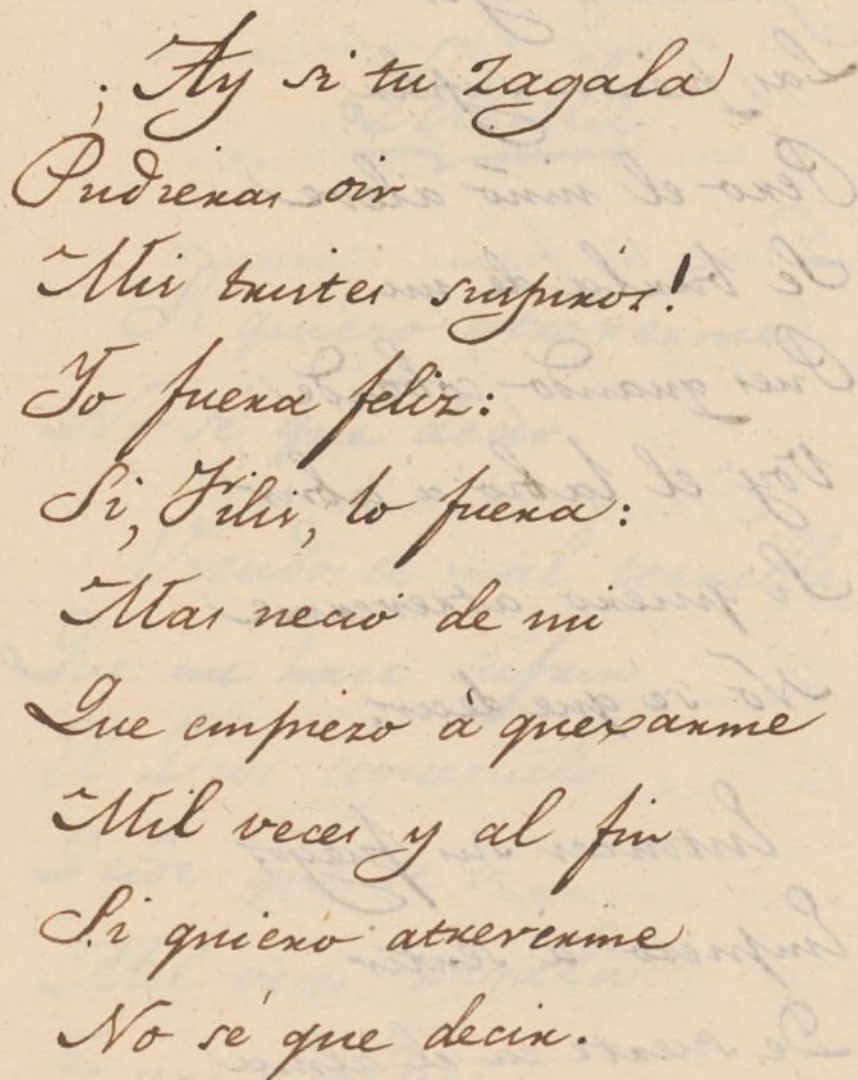 ¡Ay si tu zagala
Pudieras oir
Mis tristes suspiros!
Yo fuera feliz:
Si, Filis, lo fuera:
Mas necio de mi
Que empiezo à quexarme
Mil veces y al fin
Si quiero atreverme
No sé que decir.